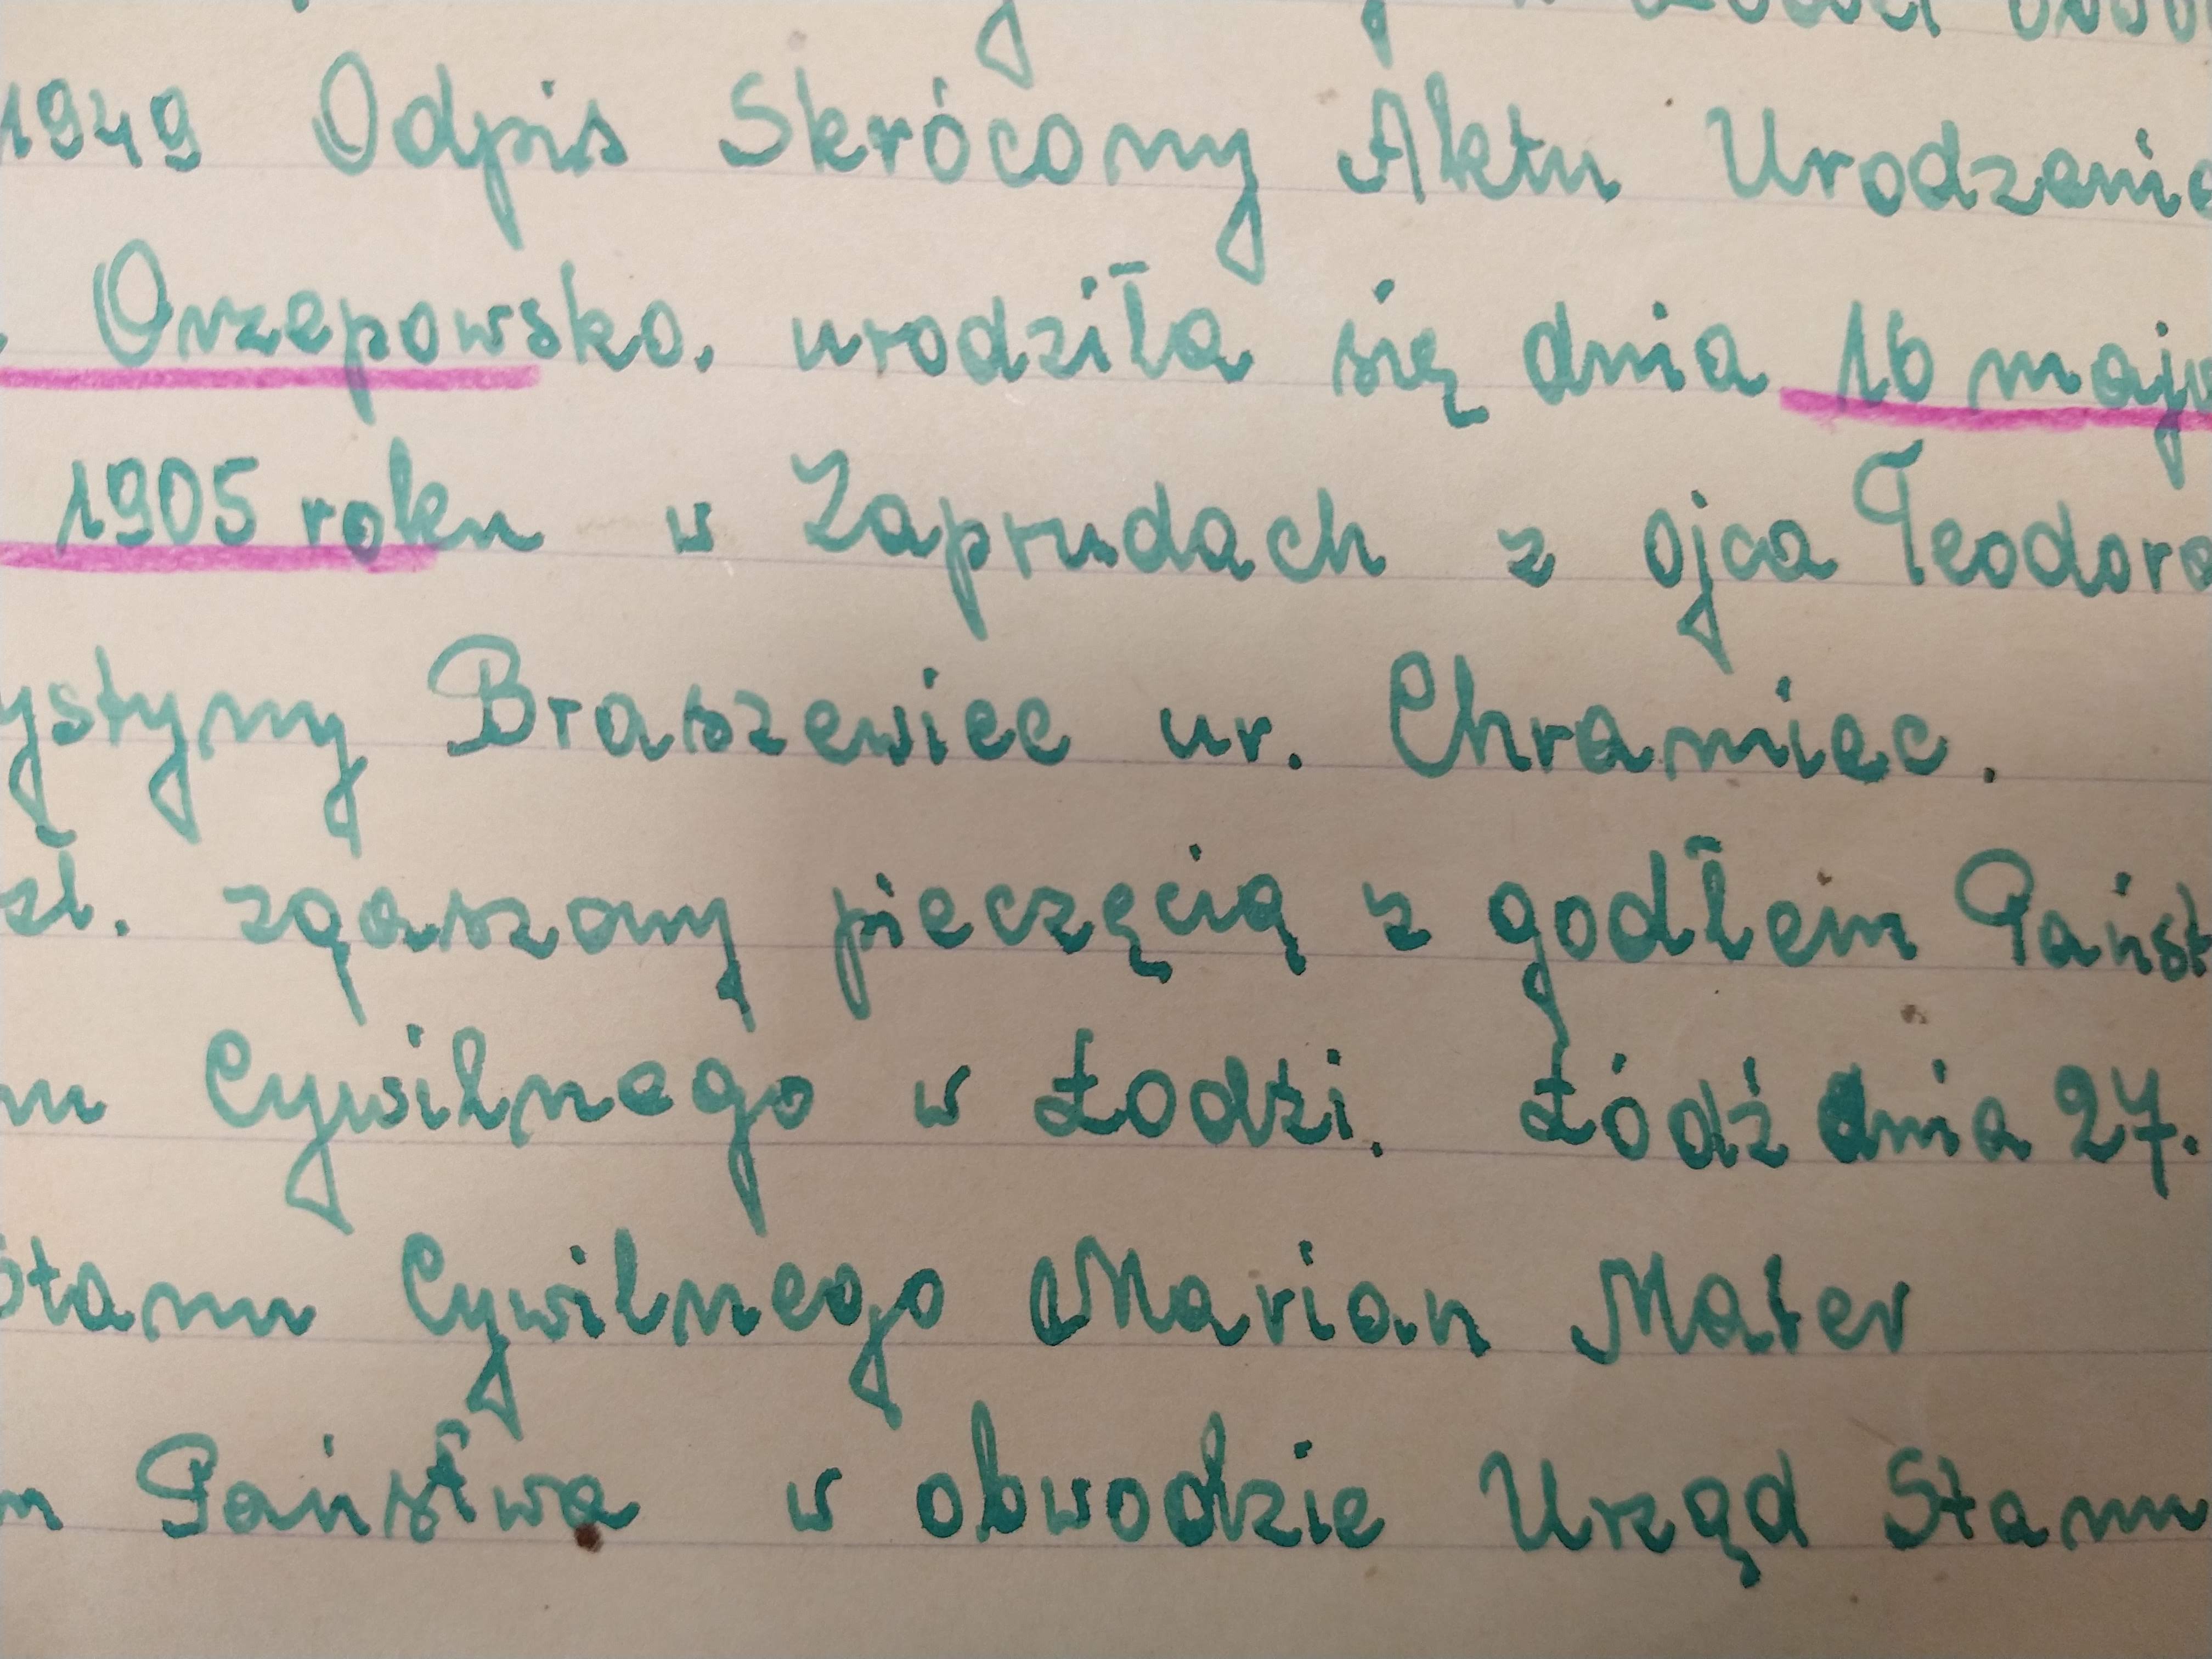 1949 Odpis Skrócony Aktu Urodzenia
Orzepowska. urodziła się dnia 16 maja
1905 roku w Zaprudach z ojca Teodora
ystyny Braszewiec ur. Chramiec.
zł. zgaszony pieczęcią z godłem Państ
m Cywilnego w Łodzi. Łódź dnia 27.
Stanu Cywilnego Marian Mater
m Państwa w obwodzie Urząd Stanu